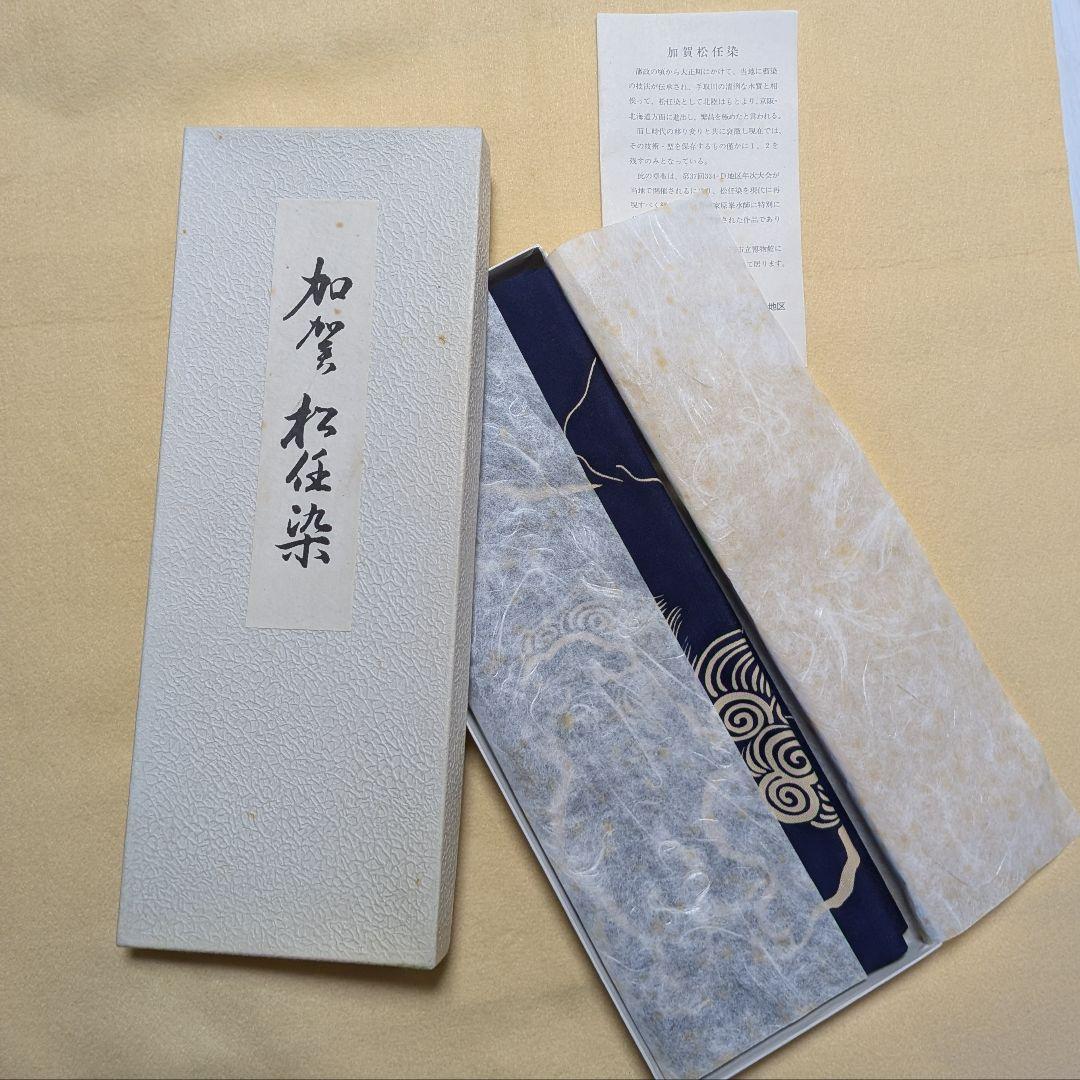 加賀 松任染
加賀松任染
藩政の頃から大正期にかけて、当地に藍染
の技法が伝承され、手取川の清冽な水質と相
俟って、松任染として北陸はもとより、京阪・
北海道方面に進出し、繁昌を極めたと言われる。
而し時代の移り変りと共に衰微し現在では、
その技術・型を保存するもの僅かに1、2を
残すのみとなっている。
此の卓布は、第37回334-D地区年次大会が
当地で開催されるに
り、松任染を現代に再
現すべく
家原峯水師に特別に
された作品であり
市立博物館に
て居ります。
地区